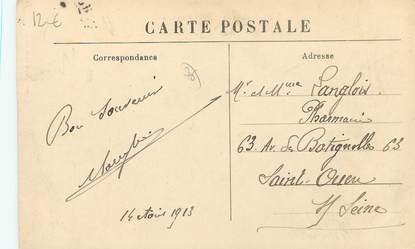 12€
CARTE POSTALE
Correspondance
Adresse
Bon Souvenir
14 Août 1913
Mr et Mme Langlois
Pharmacien
63 Av. de Batignolles 63
Saint-Ouen
s/ Seine